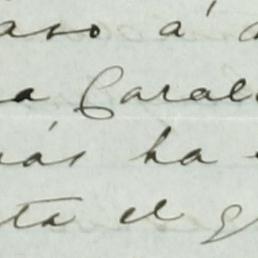 aso á
a Caral
ás ha
ta el g